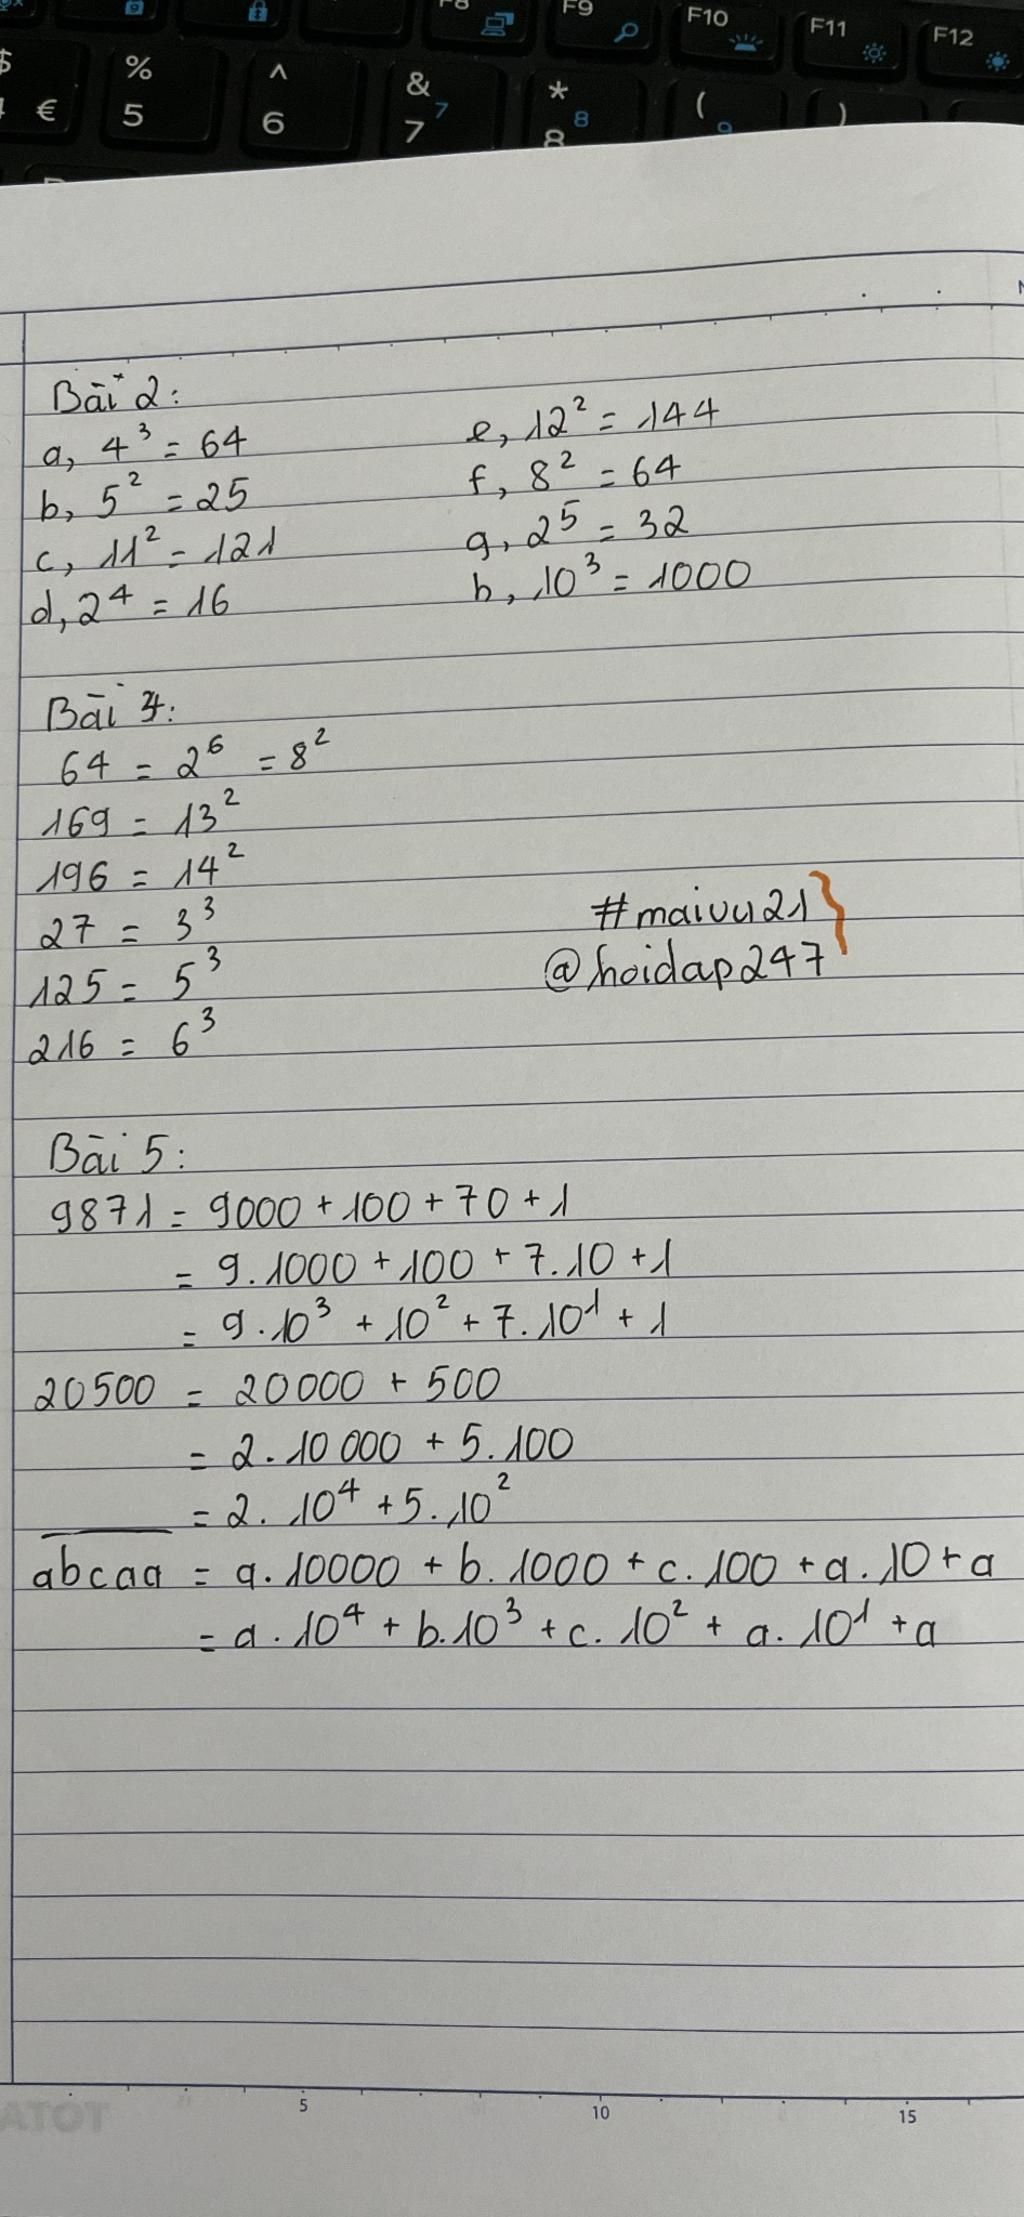 F8 F9 F10 F11 F12
$ % ^ & * ( )
€ 5 6 7 7 8 8 9
Bài 2:
a, 4³ = 64
b, 5² = 25
c, 11² = 121
d, 2⁴ = 16
e, 12² = 144
f, 8² = 64
g, 2⁵ = 32
h, 10³ = 1000
Bài 4:
64 = 2⁶ = 8²
169 = 13²
196 = 14²
27 = 3³
125 = 5³
216 = 6³
#maivu21
@hoidap247
Bài 5:
9871 = 9000 + 100 + 70 + 1
= 9.1000 + 100 + 7.10 + 1
= 9.10³ + 10² + 7.10¹ + 1
20500 = 20000 + 500
= 2.10000 + 5.100
= 2.10⁴ + 5.10²
a̅b̅c̅a̅a̅ = a.10000 + b.1000 + c.100 + a.10 + a
= a.10⁴ + b.10³ + c.10² + a.10¹ + a
5 10 15
ATOT